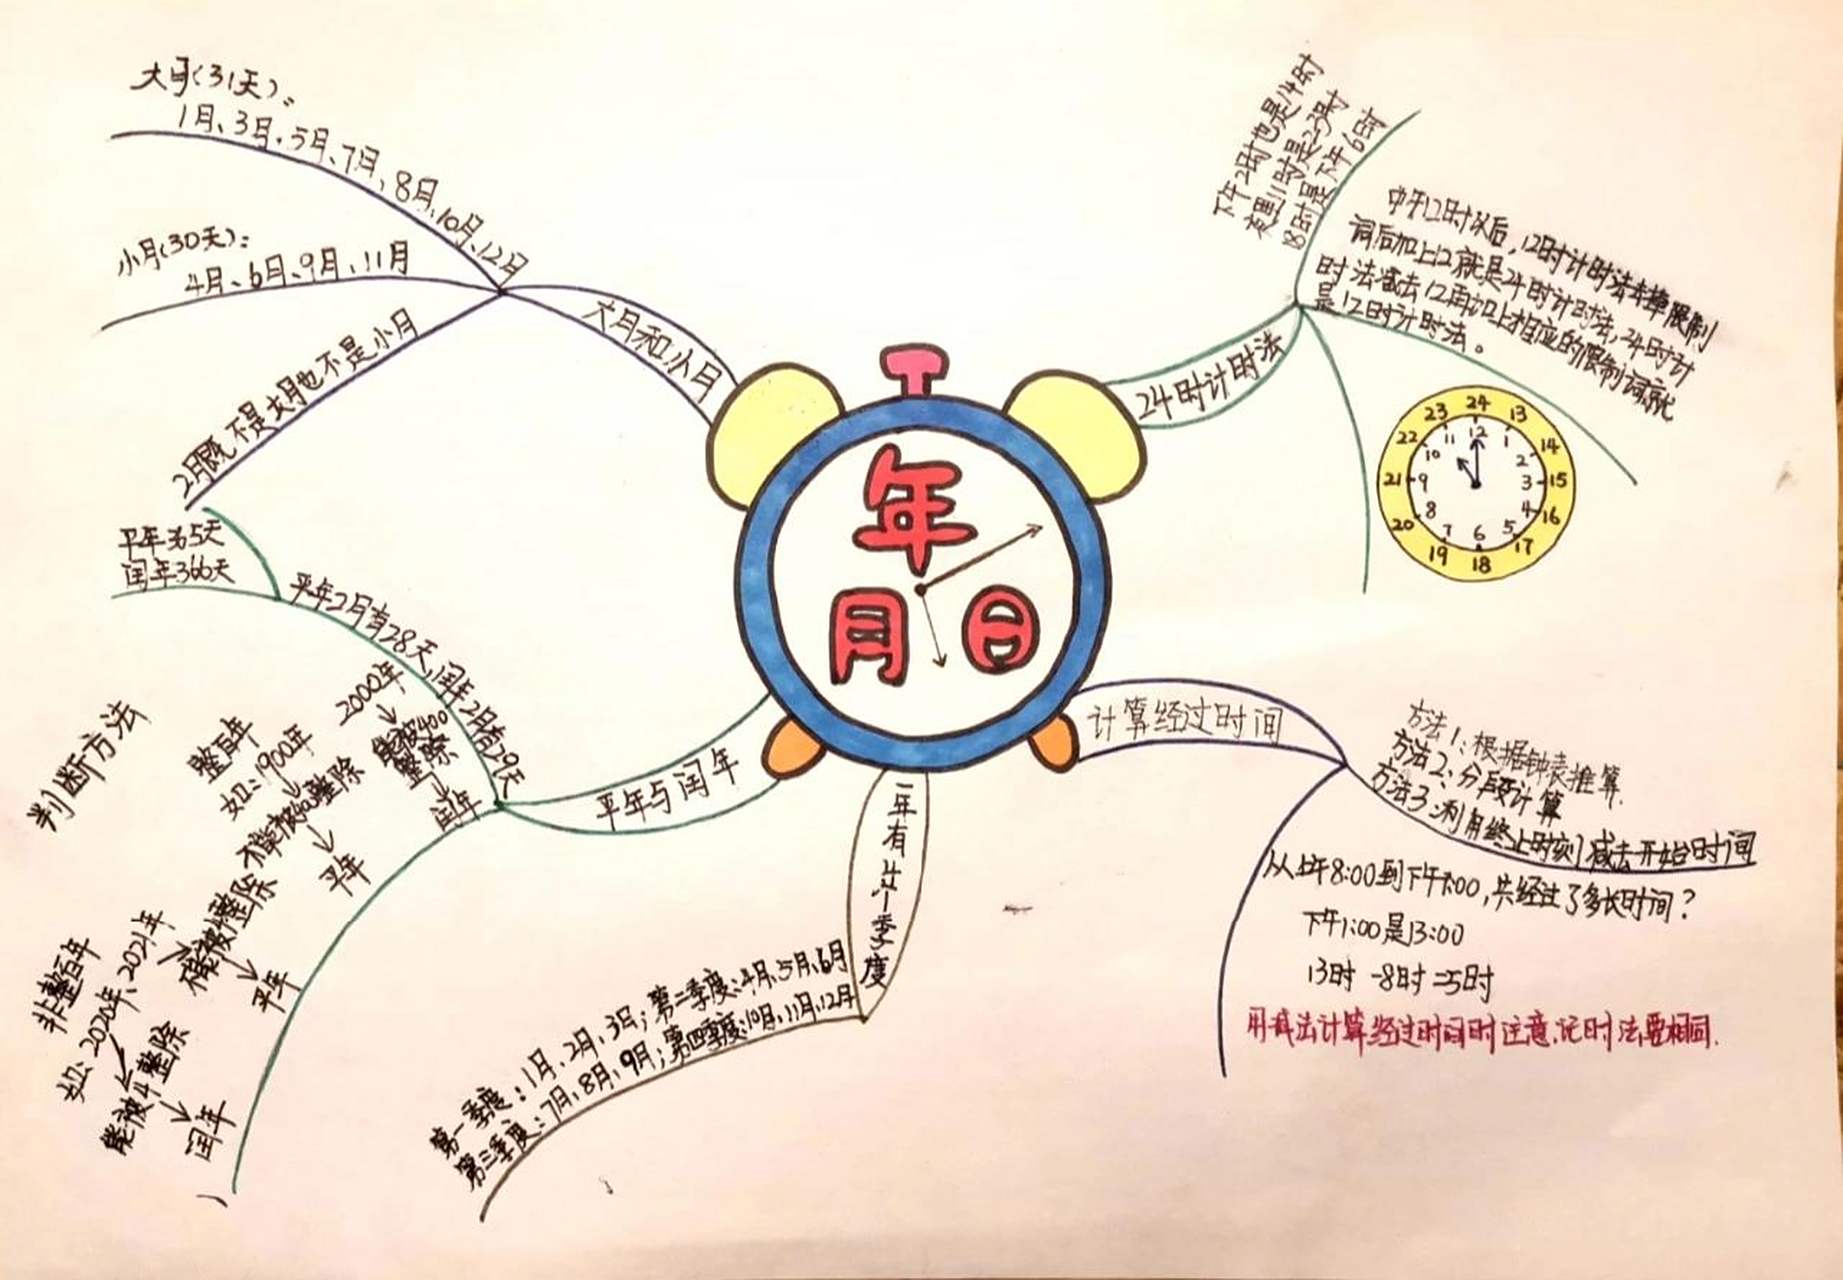 年
月 日
大月和小月
大月(31天):
1月、3月、5月、7月、8月、10月、12月
小月(30天):
4月、6月、9月、11月
2月既不是大月也不是小月
平年与闰年
平年2月有28天,闰年2月有29天
平年365天
闰年366天
判断方法
整百年
如:1900年
不能被400整除
平年
2000年
能被400整除
闰年
非整百年
如:2020年、2021年
不能被4整除
平年
能被4整除
闰年
一年有4个季度
第一季度:1月、2月、3月;第二季度:4月、5月、6月
第三季度:7月、8月、9月;第四季度:10月、11月、12月
24时计时法
下午2时也是14时
夜里11时是23时
18时是下午6时
中午12时以后,12时计时法去掉限制
词后加上12就是24时计时法,24时计
时法减去12再加上相应的限制词就
是12时计时法。
24 13 14 15 16 17 18 19 20 21 22 23
12 1 2 3 4 5 6 7 8 9 10 11
计算经过时间
方法1:根据钟表推算.
方法2:分段计算
方法3:利用终止时刻减去开始时间
从上午8:00到下午1:00,共经过了多长时间?
下午1:00是13:00
13时-8时=5时
用减法计算经过时间时注意:记时法要相同.